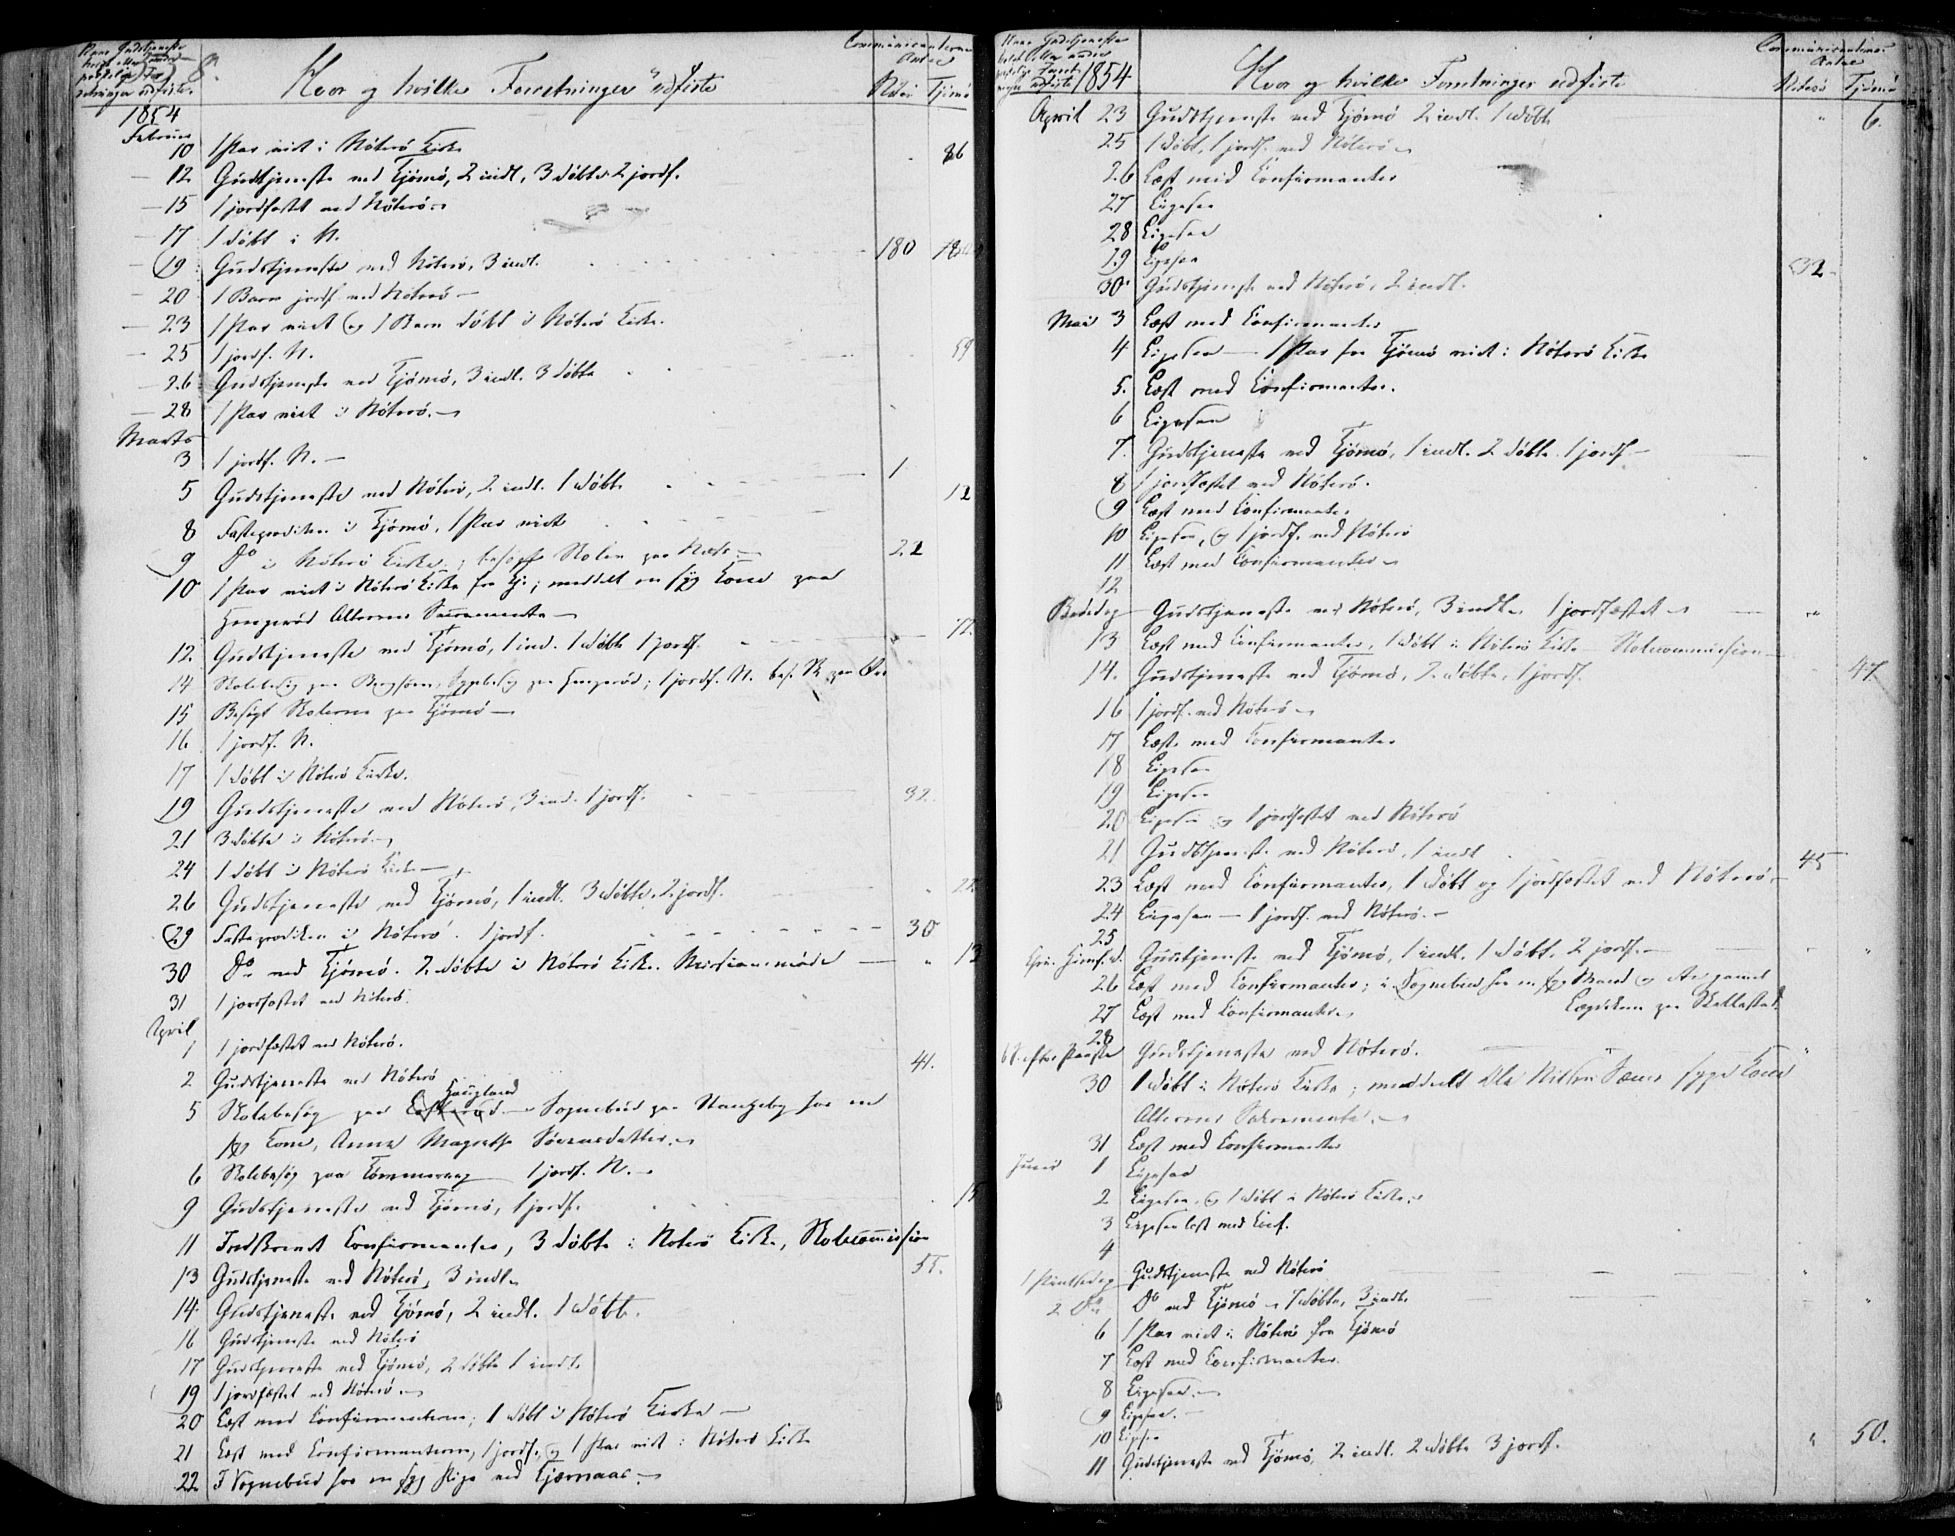 Hvor og hvilke Forretninger udførte
Communicanternes Antal
Nöterö Tjömö
1854
Februar
10 1 Par viet i Nöterö Kirke 26
12 Gudstjeneste ved Tjömö, 2 indl, 3 döbte 2 jordf.
15 1 jordfæstet ved Nöterö
17 1 döbt i N.
19 Gudstjeneste ved Nöterö, 3 indl. 180
20 1 Barn jordf. ved Nöterö
23 1 Par viet og 1 Barn döbt i Nöterö Kirke.
25 1 jordf. N. 59
26 Gudstjeneste ved Tjömö, 3 indl. 3 döbte
28 1 Par viet i Nöterö.
Marts
3 1 jordf. N.
5 Gudstjeneste ved Nöterö, 2 indl. 1 döbt 1
8 Fasteprædiken i Tjömö, 1 Par viet 12
9 Do i Nöterö Kirke; besøgt Skolen paa 22
10 1 Par viet i Nöterö Kirke fra Tj.; meddelt en syg Kone paa
Hengeröd Alterens Sacramente
12. Gudstjeneste ved Tjömö, 1 ind. 1 döbt 1 jordf. 12.
14 Skolebesög paa Sygebesög paa Hengeröd; 1 jordf. N.
15 Besögt Skolerne paa Tjömö
16 1 jordf. N.
17 1 döbt i Nöterö Kirke.
19 Gudstjeneste ved Nöterö, 3 ind. 1 jordf. 32.
21 3 döbte i Nöterö
24 1 döbt i Nöterö Kirke
26 Gudstjeneste ved Tjömö, 1 indl. 3 döbte, 2 jordf. 22
29 Fasteprædiken i Nöterö. 1 jordf. 30
30 Do ved Tjömö. 2 döbte i Nöterö Kirke. Missionsmöde " 13
31 1 jordfæstet ved Nöterö.
April
1 1 jordfæstet ved Nöterö.
2 Gudstjeneste ved Nöterö 41.
5 Skolebesög paa Haugland Sognebud paa Stangeby hos en
syg Kone, Anne Magrethe Sörensdatter.
6 Skolebesög paa Tömmeraas 1 jordf. N.
9 Gudstjeneste ved Tjömö, 1 jordf. 15
11 Indskrevet Confirmanter, 3 döbte i Nöterö Kirke, Skolecommission
13 Gudstjeneste ved Nöterö, 3 indl. 55.
14 Gudstjeneste ved Tjömö, 2 indl. 1 döbt.
16 Gudstjeneste ved Nöterö
17 Gudstjeneste ved Tjömö, 2 döbte 1 indl.
19 1 jordfæstet ved Nöterö
20 Læst med Confirmanterne; 1 döbt i Nöterö Kirke
21 Læst med Confirmanterne, 1 jordf. og 1 Par viet i Nöterö Kirke
22 I Sognebud hos en syg Pige ved Kjærnaas.
1854
Hvor og hvilke Forretninger udførte
Communicanternes Antal
Nöterö Tjömö
April 23 Gudstjeneste ved Tjömö 2 indl. 1 döbt " 6.
25 1 döbt, 1 jordf. ved Nöterö
26 Læst med Confirmanter
27 Ligesaa
28 Ligesaa
29 Ligesaa
30 Gudstjeneste ved Nöterö, 2 indl. 32
Mai 3 Læst med Confirmanter
4 Ligesaa 1 Par fra Tjömö viet i Nöterö Kirke
5. Læst med Confirmanter.
6 Ligesaa
7. Gudstjeneste ved Tjömö, 1 indl. 2 döbte. 1 jordf.
8 1 jordfæstet ved Nöterö.
9 Læst med Confirmanter
10 Ligesaa, og 1 jordf. ved Nöterö
11 Læst med Confirmanter
12
Bededag Gudstjeneste ved Nöterö, 3 indl. 1 jordfæstet
13 Læst med Confirmanter, 1 döbt i Nöterö Kirke Skolecommission
14. Gudstjeneste ved Tjömö, 2 döbte, 1 jordf. 47
16 1 jordf. ved Nöterö
17 Læst med Confirmanter
18 Ligesaa
19 Ligesaa
20 Ligesaa og 1 jordfæstet ved Nöterö
21 Gudstjeneste ved Nöterö, 1 indl 45
23 Læst med Confirmanter, 1 döbt og 1 jordfæstet ved Nöterö
24 Ligesaa 1 jordf. ved Nöterö.
25
Gudstjeneste ved Tjömö, 1 indl. 1 döbt. 2 jordf.
26 Læst med Confirmanter; i Sognebud hos en syg Mand
27 Læst med Confirmanter
28
Gudstjeneste ved Nöterö.
30 1 döbt i Nöterö Kirke; meddelt syge Kone
Alterens Sakramente.
31 Læst med Confirmanter
Juni 1 Ligesaa
2 Ligesaa og 1 döbt i Nöterö Kirke
3 Ligesaa læst med Conf.
4
1 Pintsedag Gudstjeneste ved Nöterö
2 Do Do ved Tjömö 7 döbte, 3 indl.
6 1 Par viet i Nöterö fra Tjömö
7 Læst med Confirmanter.
8 Ligesaa.
9 Ligesaa.
10 Ligesaa
11 Gudstjeneste ved Tjömö, 2 indl. 2 döbte 3 jordf. " 50.